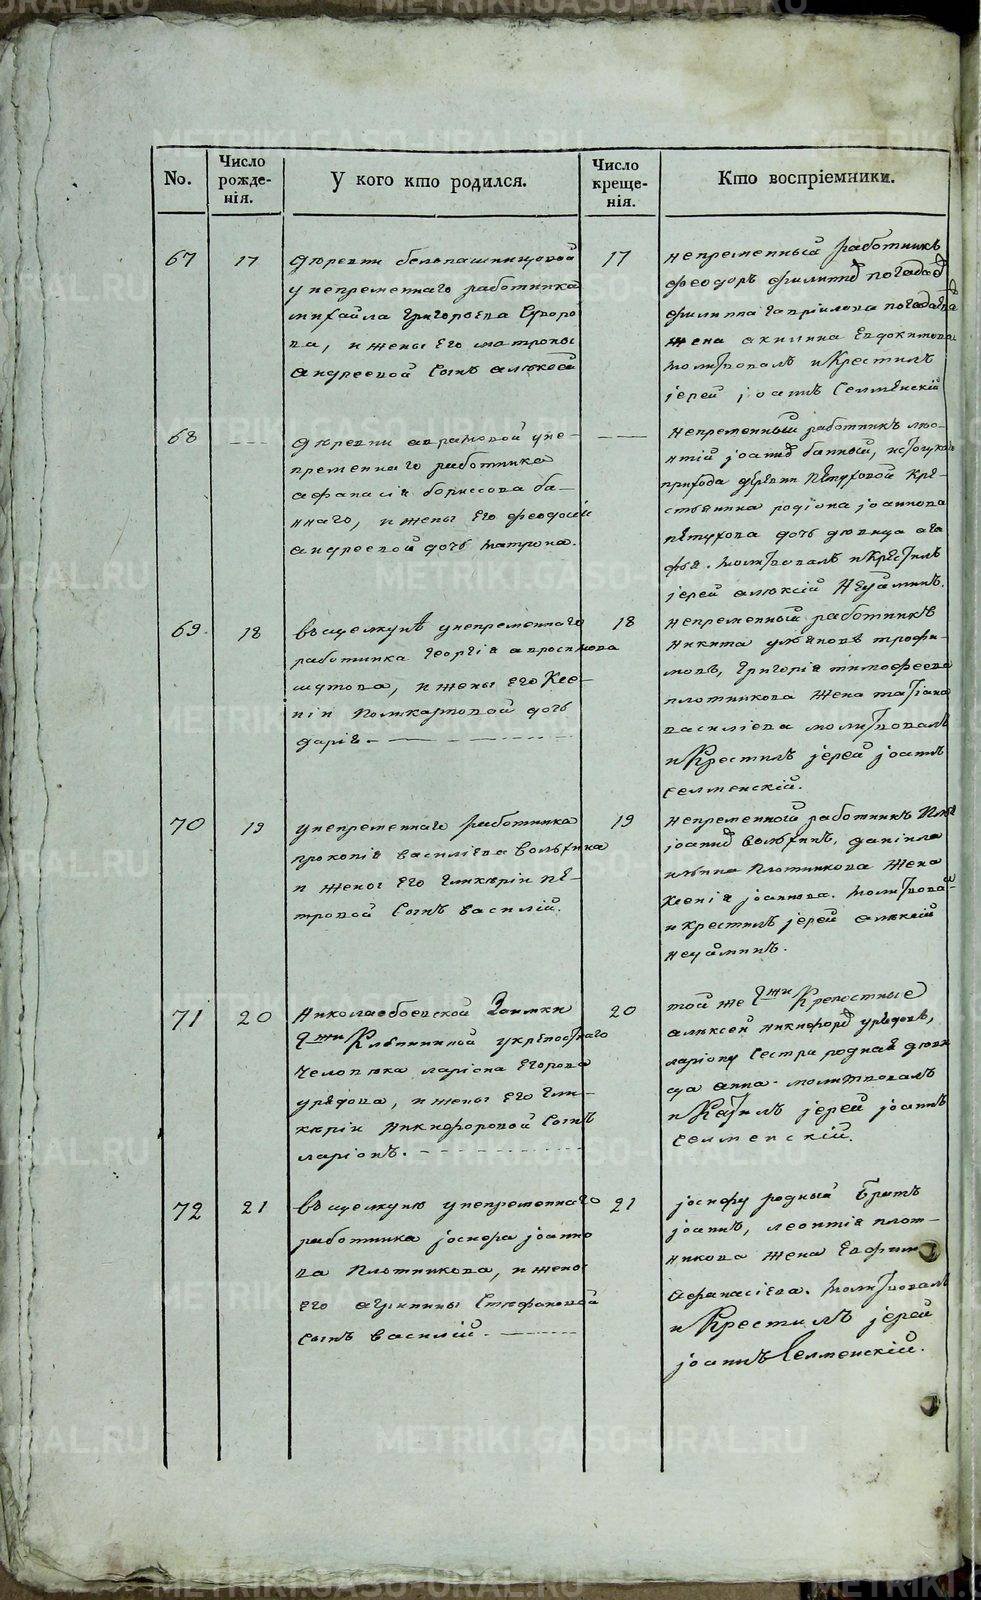 METRIKI.GASO-URAL.RU
No.
Число рожде-нія.
У кого кто родился.
Число креще-нія.
Кто воспріемники.
67
17
у непременнаго работника
михайла Григорьева
ва, и жены его матроны
андреевой сынъ алѣксѣй
17
непременный работникъ
феодоръ филипъ
филиппа гавріилова
жена акилина Евдокимова
молитвовалъ и крестилъ
іерей іоаннъ Селменскій
68
деревни аврамовой у не-
пременнаго работника
афанасія борисова ба-
ннаго, и жены его феодосіи
андреевой дочь матрона.
непременный работникъ лео-
нтій іоаннъ банный,
прихода деревни пѣтуховой кре-
стьянина родіона іоаннова
пѣтухова дочь девица ага
фья. молитвовалъ и крестилъ
іерей алѣксій Неуйминъ.
69.
18
въ щелкунѣ у непременнаго
работника георгія
шутова, и жены его ксе-
ніи поликарповой дочь
дарія.
18
непременный работникъ
никита ульяновъ трофи-
мовъ, григорія тимофеева
плотникова жена татіана
василіева молитвовалъ
и крестилъ іерей іоаннъ
селменскій.
70
19
у непременнаго работника
прокопія василіева
и жены его гликѣріи пе-
тровой сынъ василій.
19
непременной работникъ
іоаннъ данійла
ильина плотникова жена
ксенія іоаннова. молитвова-
и крестилъ іерей алѣксій
неуйминъ.
71
20
Николаобоевской Заимки
у крепостнаго
человека ларіона Егорова
урядова, и жены его гли-
кѣріи никифоровой сынъ
ларіонъ.
20
той же крепостные
алѣксей никифоръ урядовъ,
ларіону сестра родная деви
ца анна. молитвовалъ
и крестилъ іерей іоаннъ
селменскій.
72
21
въ щелкунѣ у непременнаго
работника іосифа іоанно
ва плотникова, и жены
его агрипины Стефановой
сынъ василій.
21
іосифу родный братъ
іоаннъ, леонтія плот-
никова жена Евфимія
афанасіева. молитвовалъ
и крестилъ іерей
іоаннъ Селменскій.